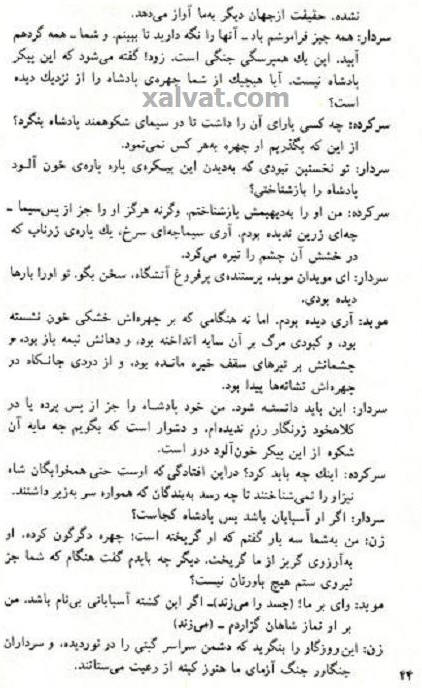 نشده. حقیقت ازجهان دیگر به‌ما آواز می‌دهد.
سردار: همه چیز فراموشم باد ـ آنها را نگه دارید تا ببینم. و شما ـ همه گردهم
آیید. این یك همپرسگی جنگی است. زود! گفته می‌شود که این پیکر
پادشاه نیست. آیا هیچیك از شما چهره‌ی پادشاه را از نزدیك دیده
xalvat.com
است؟
سرکرده: چه کسی یارای آن را داشت تا در سیمای شکوهمند پادشاه بنگرد؟
از این که بگذریم او چهره به‌هر کس نمی‌نمود.
سردار: تو نخستین نبودی که به‌دیدن این پیکره‌ی پاره پاره‌ی خون آلود
پادشاه را بازشناختی؟
سرکرده: من او را به‌دیهیمش بازشناختم. وگرنه هرگز او را جز از پس‌سیما ـ
چه‌ای زرین ندیده بودم. آری سیماچه‌ای سرخ، یك پاره‌ی زرناب که
در خشش آن چشم را تیره می‌کرد.
سردار: ای موبدان موبد، پرستنده‌ی پرفروغ آتشگاه، سخن بگو. تو اورا بارها
دیده بودی.
موبد: آری دیده بودم. اما نه هنگامی که بر چهره‌اش خشکی خون نشسته
بود، و کبودی مرگ بر آن سایه انداخته بود، و دهانش نیمه باز بود، و
چشمانش بر تیرهای سقف خیره مانده بود، و از دردی جانکاه در
چهره‌اش نشانه‌ها پیدا بود.
سردار: این باید دانسته شود. من خود پادشاه را جز از پس پرده یا در
کلاهخود زرنگار رزم ندیده‌ام. و دشوار است که بگویم چه مایه آن
شکوه از این پیکر خون‌آلود دور است.
سرکرده: اینك چه باید کرد؟ دراین افتادگی که اوست حتی همخوابگان شاه
نیزاو را نمی‌شناختند تا چه رسد به‌بندگان که همواره سر به‌زیر داشتند.
سردار: اگر او آسیابان باشد پس پادشاه کجاست؟
زن: من به‌شما سه بار گفتم که او گریخته است؛ چهره دگرگون کرده. او
به‌آرزوی گریز از ما گریخت. دیگر چه بایدم گفت هنگام که شما جز
نیروی ستم هیچ باورتان نیست؟
موبد: وای بر ما! (جسد را می‌زند)ـ اگر این کشته آسیابانی بی‌نام باشد. من
بر او نماز شاهان گزاردم ـ (می‌زند)
زن: این‌روزگار را بنگرید که دشمن سراسر گیتی را در نوردیده، و سرداران
جنگاور جنگ آزمای ما هنوز کینه از رعیت می‌ستانند.
۴۴